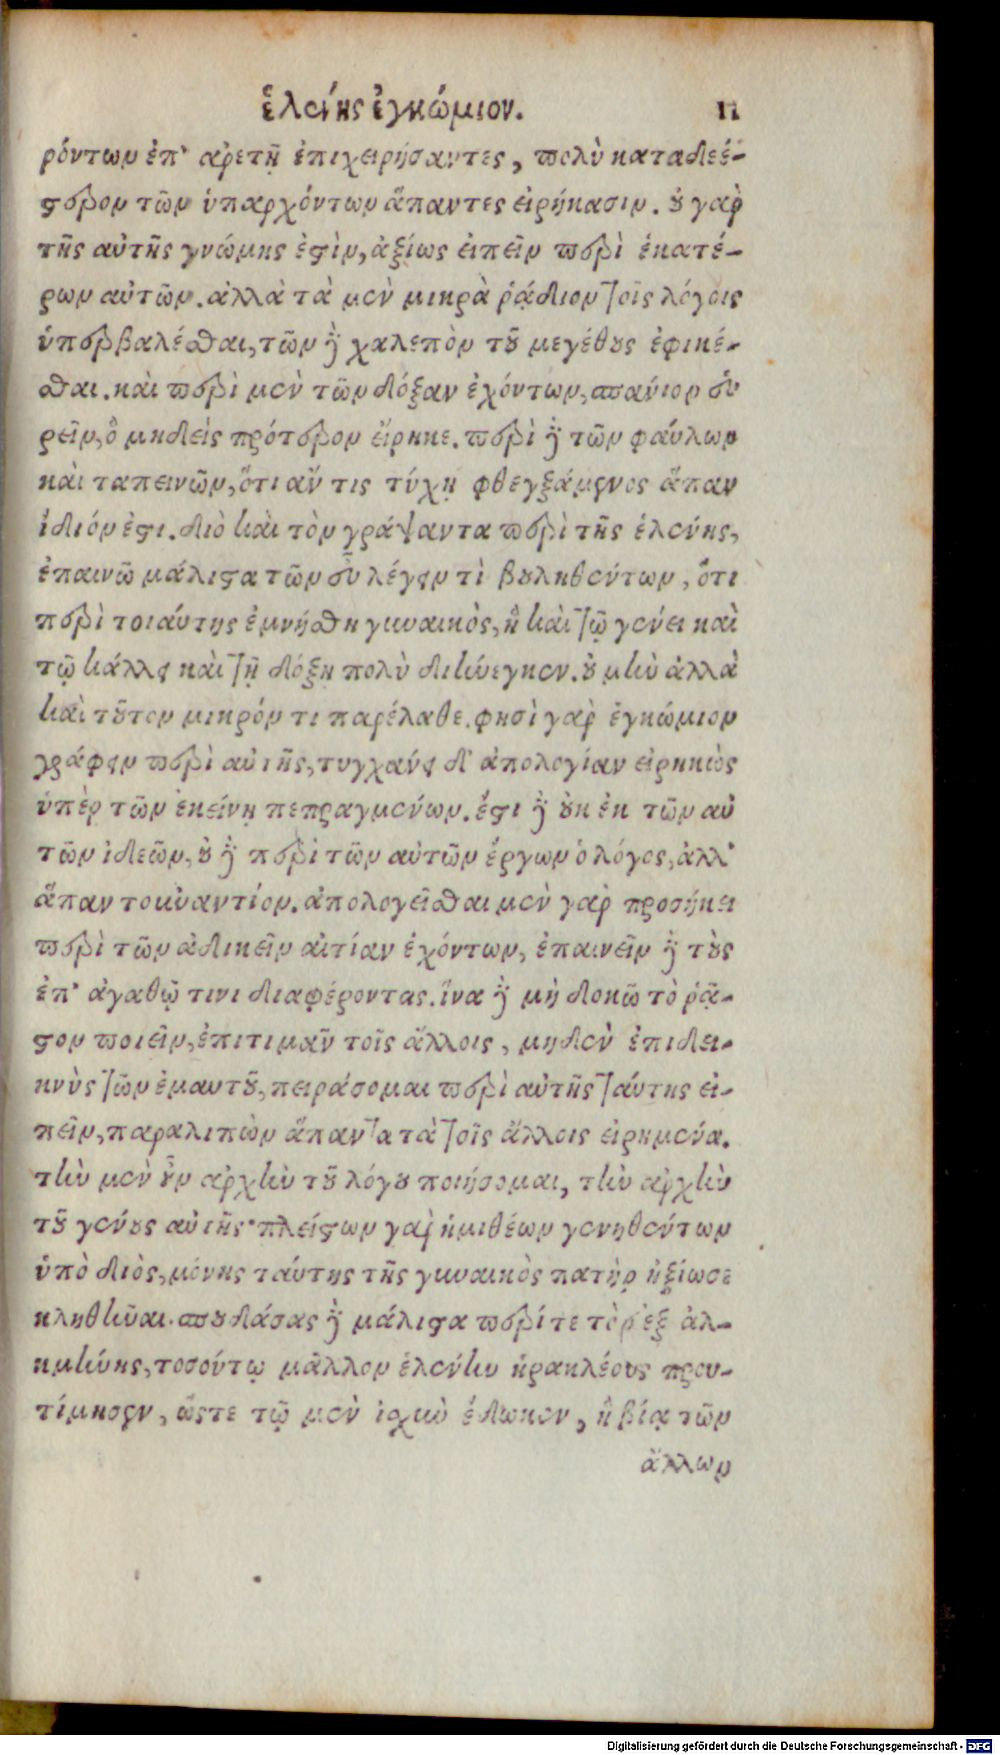 ἑλένης ἐγκώμιον. 11
ρόντων ἐπ' ἀρετῇ ἐπιχειρήσαντες, πολὺ καταδεέ-
στερον τῶν ὑπαρχόντων ἅπαντες εἰρήκασιν. οὐ γὰρ
τῆς αὐτῆς γνώμης ἐστὶν, ἀξίως εἰπεῖν περὶ ἑκατέ-
ρων αὐτῶν. ἀλλὰ τὰ μὲν μικρὰ ῥᾴδιον τοῖς λόγοις
ὑπερβαλέσθαι, τῶν δὲ χαλεπὸν τοῦ μεγέθους ἐφικέ-
σθαι. καὶ περὶ μὲν τῶν δόξαν ἐχόντων, σπάνιον εὑ
ρεῖν, ὃ μηδεὶς πρότερον εἴρηκε. περὶ δὲ τῶν φαύλων
καὶ ταπεινῶν, ὅτι ἄν τις τύχῃ φθεγξάμενος ἅπαν
ἴδιόν ἐστι. διὸ καὶ τὸν γράψαντα περὶ τῆς ἑλένης,
ἐπαινῶ μάλιστα τῶν εὖ λέγειν τὶ βουληθέντων, ὅτι
περὶ τοιαύτης ἐμνήσθη γυναικὸς, ἣ καὶ τῷ γένει καὶ
τῷ κάλλει καὶ τῇ δόξῃ πολὺ διήνεγκεν. οὐ μὴν ἀλλὰ
καὶ τοῦτον μικρόν τι παρέλαθε. φησὶ γὰρ ἐγκώμιον
γράφειν περὶ αὐτῆς, τυγχάνει δ' ἀπολογίαν εἰρηκὼς
ὑπὲρ τῶν ἐκείνῃ πεπραγμένων. ἔστι δὲ οὐκ ἐκ τῶν αὐ
τῶν ἰδεῶν, οὐ δὲ περὶ τῶν αὐτῶν ἔργων ὁ λόγος, ἀλλ'
ἅπαν τοὐναντίον. ἀπολογεῖσθαι μὲν γὰρ προσήκει
περὶ τῶν ἀδικεῖν αἰτίαν ἐχόντων, ἐπαινεῖν δὲ τοὺς
ἐπ' ἀγαθῷ τινι διαφέροντας. ἵνα δὲ μὴ δοκῶ τὸ ῥᾷ-
στον ποιεῖν, ἐπιτιμᾶν τοῖς ἄλλοις, μηδὲν ἐπιδει-
κνὺς τῶν ἐμαυτοῦ, πειράσομαι περὶ αὐτῆς ταύτης εἰ-
πεῖν, παραλιπὼν ἅπαντα τὰ τοῖς ἄλλοις εἰρημένα.
τὴν μὲν οὖν ἀρχὴν τοῦ λόγου ποιήσομαι, τὴν ἀρχὴν
τοῦ γένους αὐτῆς· πλείστων γὰρ ἡμιθέων γενηθέντων
ὑπὸ διὸς, μόνης ταύτης τῆς γυναικὸς πατὴρ ἠξίωσε
κληθῆναι. σπουδάσας δὲ μάλιστα περί τε τὸν ἐξ ἀλ-
κμήνης, τοσούτῳ μᾶλλον ἑλένην ἡρακλέους πρου-
τίμησεν, ὥστε τῷ μὲν ἰσχὺν ἔδωκεν, ἣ βίᾳ τῶν
ἄλλων
Digitalisierung gefördert durch die Deutsche Forschungsgemeinschaft - DFG